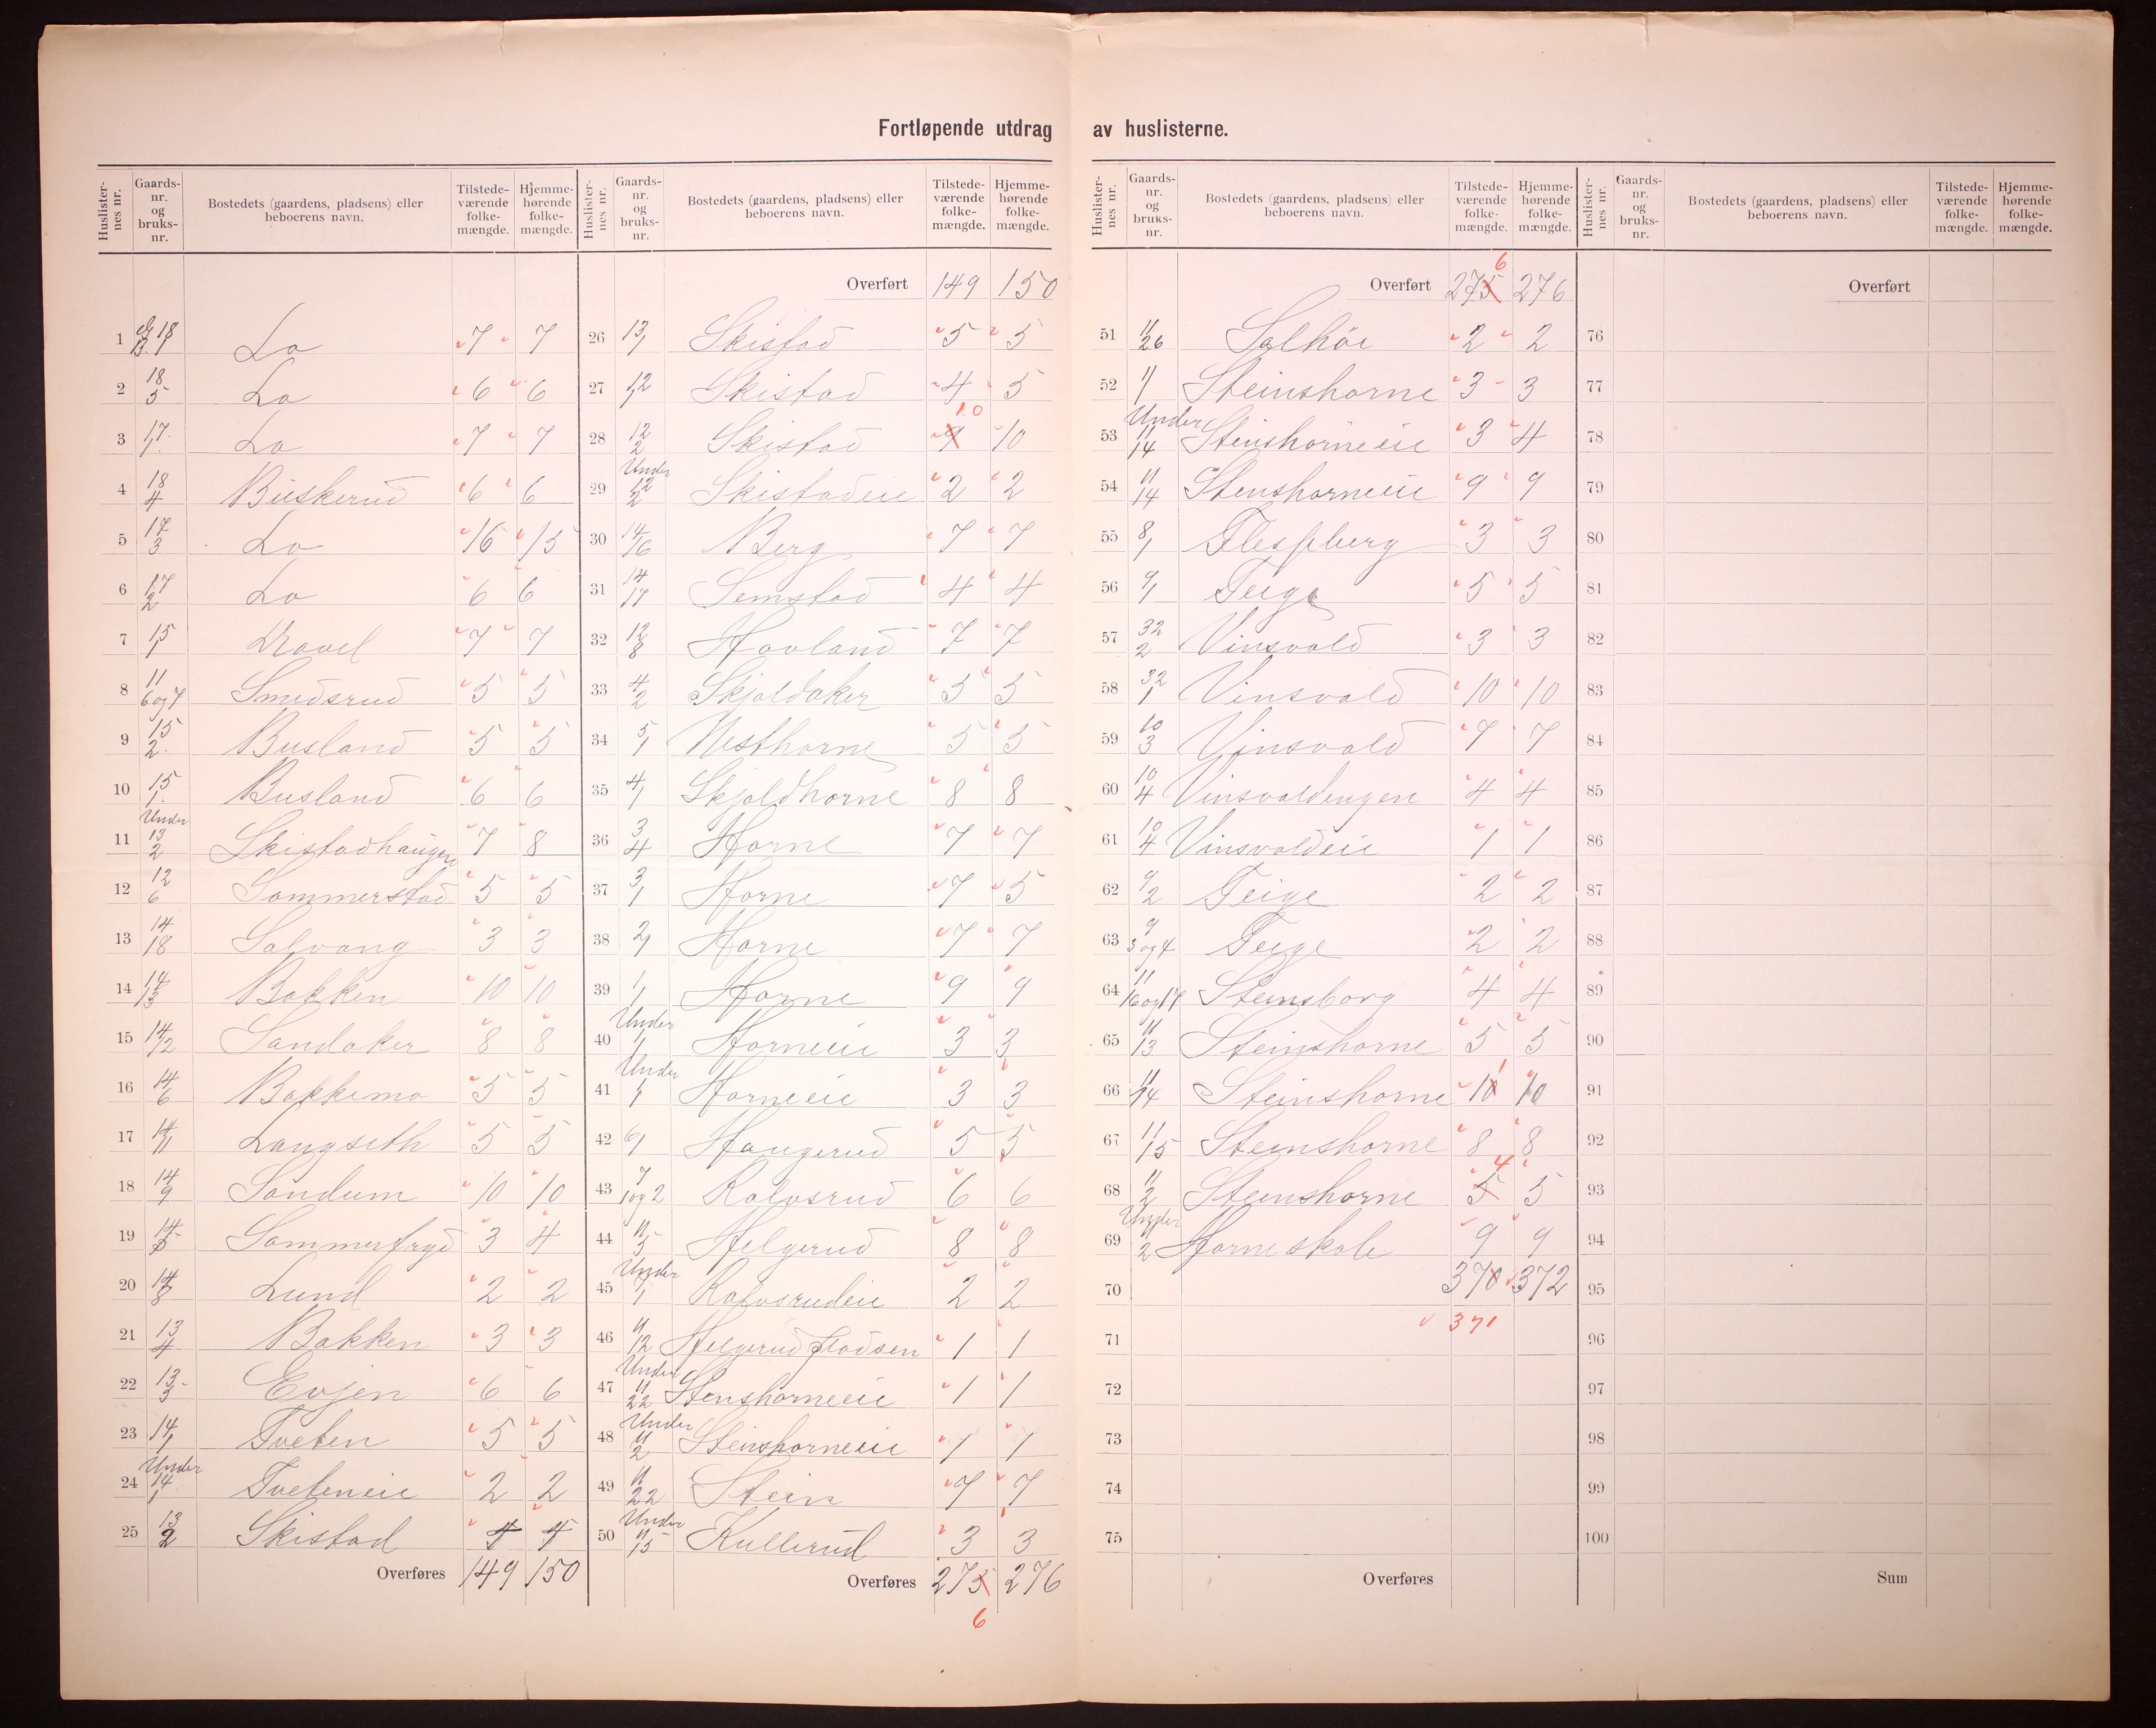 Fortløpende utdrag av huslisterne.
Huslister-nes nr. Gaards-nr. og bruks-nr. Bostedets (gaardens, pladsens) eller beboerens navn. Tilstede-værende folke-mængde. Hjemme-hørende folke-mængde.
1 18 Lo 7 7
2 18/5 Lo 6 6
3 17/1 Lo 7 7
4 18/4 Buskerud 6 6
5 17/3 Lo 16 15
6 17/2 Lo 6 6
7 15/1 7 7
8 11/6 og 7 Smedsrud 5 5
9 15/2 Busland 5 5
10 15/1 Busland 6 6
11 Under 13/2 Skistadhaugen 7 8
12 12/6 Sommerstad 5 5
13 14/18 Solvang 3 3
14 14/13 Bakken 10 10
15 14/2 Sandaker 8 8
16 14/6 Bakkemo 5 5
17 14/11 Langseth 5 5
18 14/9 Søndum 10 10
19 14 Sommerfryd 3 4
20 14/8 Lund 2 2
21 13/4 Bakken 3 3
22 13/3 Evjen 6 6
23 14/1 Tveten 5 5
24 Under 14/1 Tveteneie 2 2
25 13/2 Skistad 4 4
Overføres 149 150
Huslister-nes nr. Gaards-nr. og bruks-nr. Bostedets (gaardens, pladsens) eller beboerens navn. Tilstede-værende folke-mængde. Hjemme-hørende folke-mængde.
Overført 149 150
26 13/1 Skistad 5 5
27 12/1 Skistad 4 5
28 12/2 Skistad 9 10 10
29 Under 12/2 Skistadeie 2 2
30 14/16 Berg 7 7
31 14/17 Semstad 4 4
32 12/8 Hovland 7 7
33 4/2 Skjoldaker 5 5
34 5/1 Vesthorne 5 5
35 4/1 Skjoldhorne 8 8
36 3/4 Horne 7 7
37 3/1 Horne 7 5
38 2/1 Horne 7 7
39 1/1 Horne 9 9
40 Under 1/1 Horneeie 3 3
41 Under 1/1 Horneeie 3 3
42 6/1 Haugerud 5 5
43 7/1 og 2 Rolvsrud 6 6
44 11/5 Helgerud 8 8
45 Under 7/1 Rolvsrudeie 2 2
46 11/12 Helgerud Plodsen 1 1
47 Under 11/22 Stenshorneeie 1 1
48 Under 11/2 Steinshorneeie 1 1
49 11/22 Stein 7 7
50 Under 11/15 Kullerud 3 3
Overføres 275 276
6
Huslister-nes nr. Gaards-nr. og bruks-nr. Bostedets (gaardens, pladsens) eller beboerens navn. Tilstede-værende folke-mængde. Hjemme-hørende folke-mængde.
Overført 275 6 276
51 11/26 Solhøi 2 2
52 11/1 Steinshorne 3 3
53 Under 11/14 Steinshorneeie 3 4
54 11/14 Stenshorneeie 9 9
55 8/1 Flesberg 3 3
56 9/1 Teige 5 5
57 32/2 Vinsvold 3 3
58 32/1 Vinsvold 10 10
59 10/3 Vinsvold 7 7
60 10/4 Vinsvoldengen 4 4
61 10/4 Vinsvoldeie 1 1
62 9/2 Teige 2 2
63 9/3 og 4 Teige 2 2
64 11/16 og 17 Steinsborg 4 4
65 11/13 Steinshorne 5 5
66 11/14 Steinshorne 10 1 10
67 11/15 Steinshorne 8 8
68 11/2 Steinshorne 5 4 5
69 Under 11/2 Horne skole 9 9
70 370 372
71 371
72
73
74
75
Overføres
Huslister-nes nr. Gaards-nr. og bruks-nr. Bostedets (gaardens, pladsens) eller beboerens navn. Tilstede-værende folke-mængde. Hjemme-hørende folke-mængde.
Overført
76
77
78
79
80
81
82
83
84
85
86
87
88
89
90
91
92
93
94
95
96
97
98
99
100
Sum